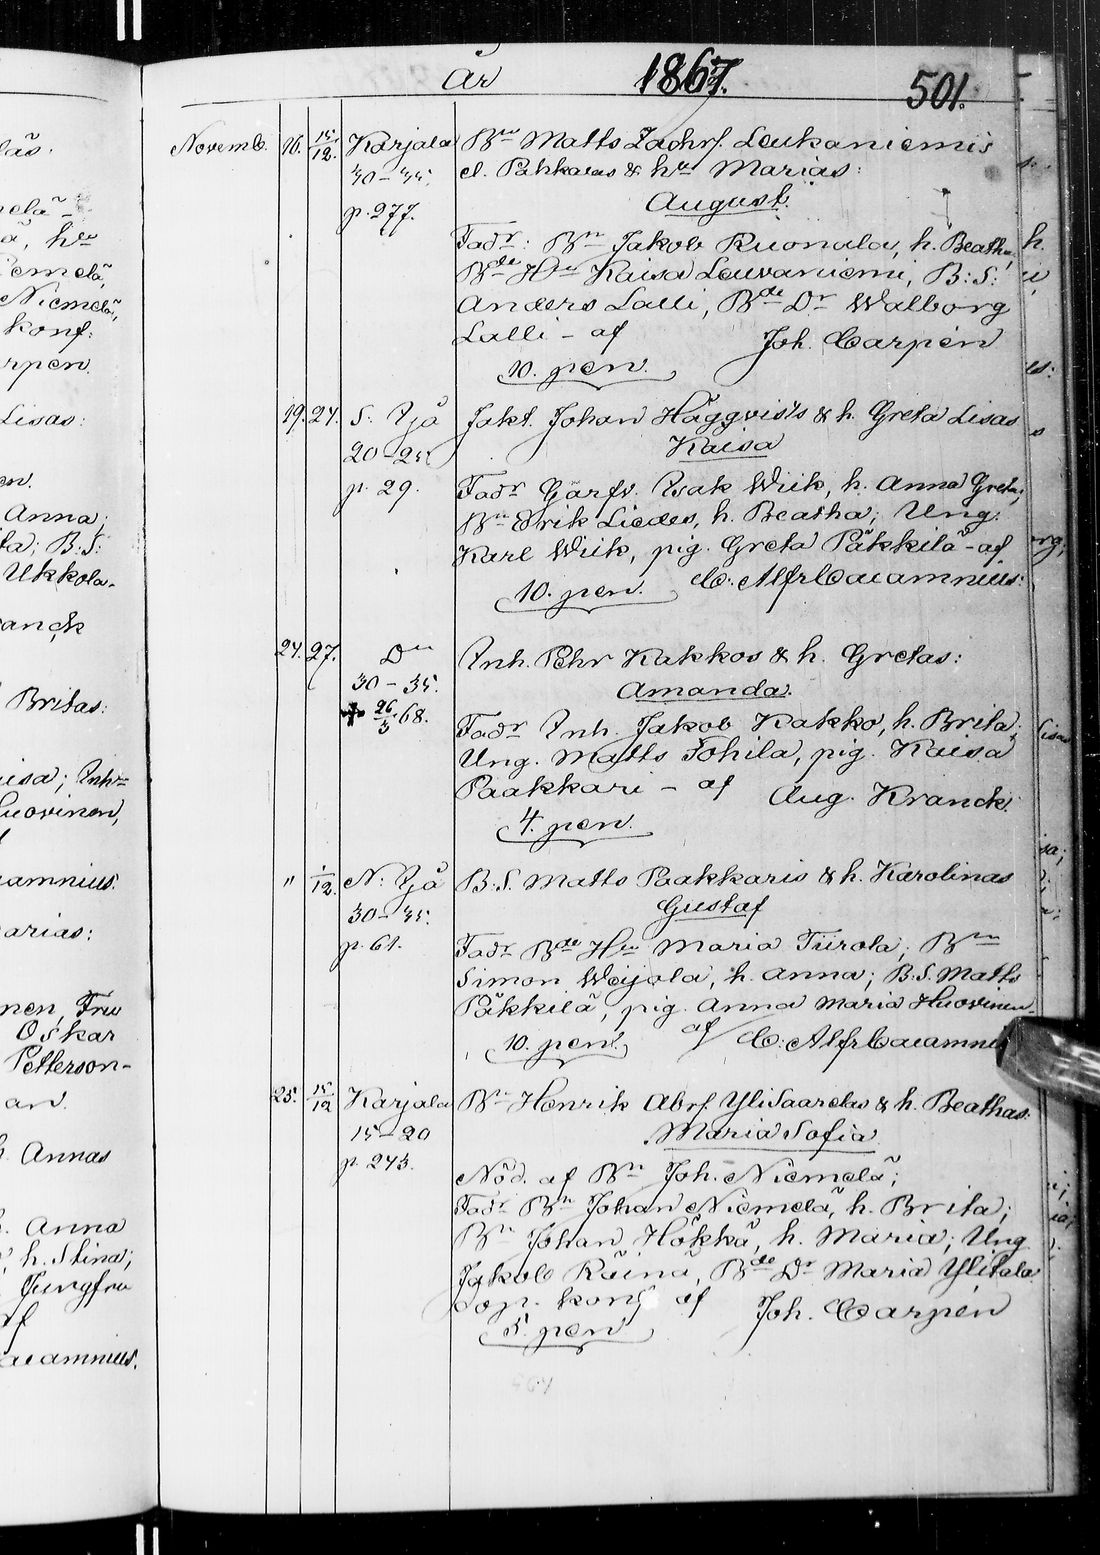 År 1867. 501.
Novemb. 16. 15/12. Karjala Bn Matts Zachrs. Leukaniemis
30-35. d. Pahkalas & hu Marias:
p. 277. August.
Fadr: Bn Jakob Ruonala, h. Beatha;
Bde Hu Kaisa Leuvaniemi, B: S:
Anders Lalli, Bde Dr Walborg
Lalli - af Joh. Carpén
10. pen.
19. 24. S: Ijå Jakt. Johan Häggvists & h. Greta Lisas
20-25 Kaisa
p. 29. Fadr Garfv. Isak Wiik, h. Anna Greta;
Bn Erik Liedes, h. Beatha; Ung.
Karl Wiik, pig. Greta Päkkilä - af
10. pen. C. Alfr Cajamnius:
24. 27. Do Inh. Pehr Kakkos & h. Gretas:
30-35. Amanda.
+ 26/3 68. Fadr Inh. Jakob Kakko, h. Brita;
Ung. Matts Tohila, pig. Kaisa
Paakkari - af Aug. Kranck.
4. pen.
" 1/12. N: Ijå B: S. Matts Paakkaris & h. Karolinas
30-35. Gustaf
p. 61. Fadr Bde Hu Maria Tiirola; Bn
Simon Weijola, h. Anna; B. S. Matts
Päkkilä, pig. Anna Maria Huovinen.
10. pen. af C: Alfr Cajamnius
25. 15/12 Karjala Bn Henrik Abrs. YliSaarelas & h. Beathas
15-20 Maria Sofia.
p. 243. Nöd. af Bn Joh. Niemelä;
Fadr Bn Johan Niemelä, h. Brita;
Bn Johan Hökkä, h. Maria; Ung
Jakob Räinä, Bde Dr Maria Ylitalo
Dop. konf af Joh. Carpén
5. pen